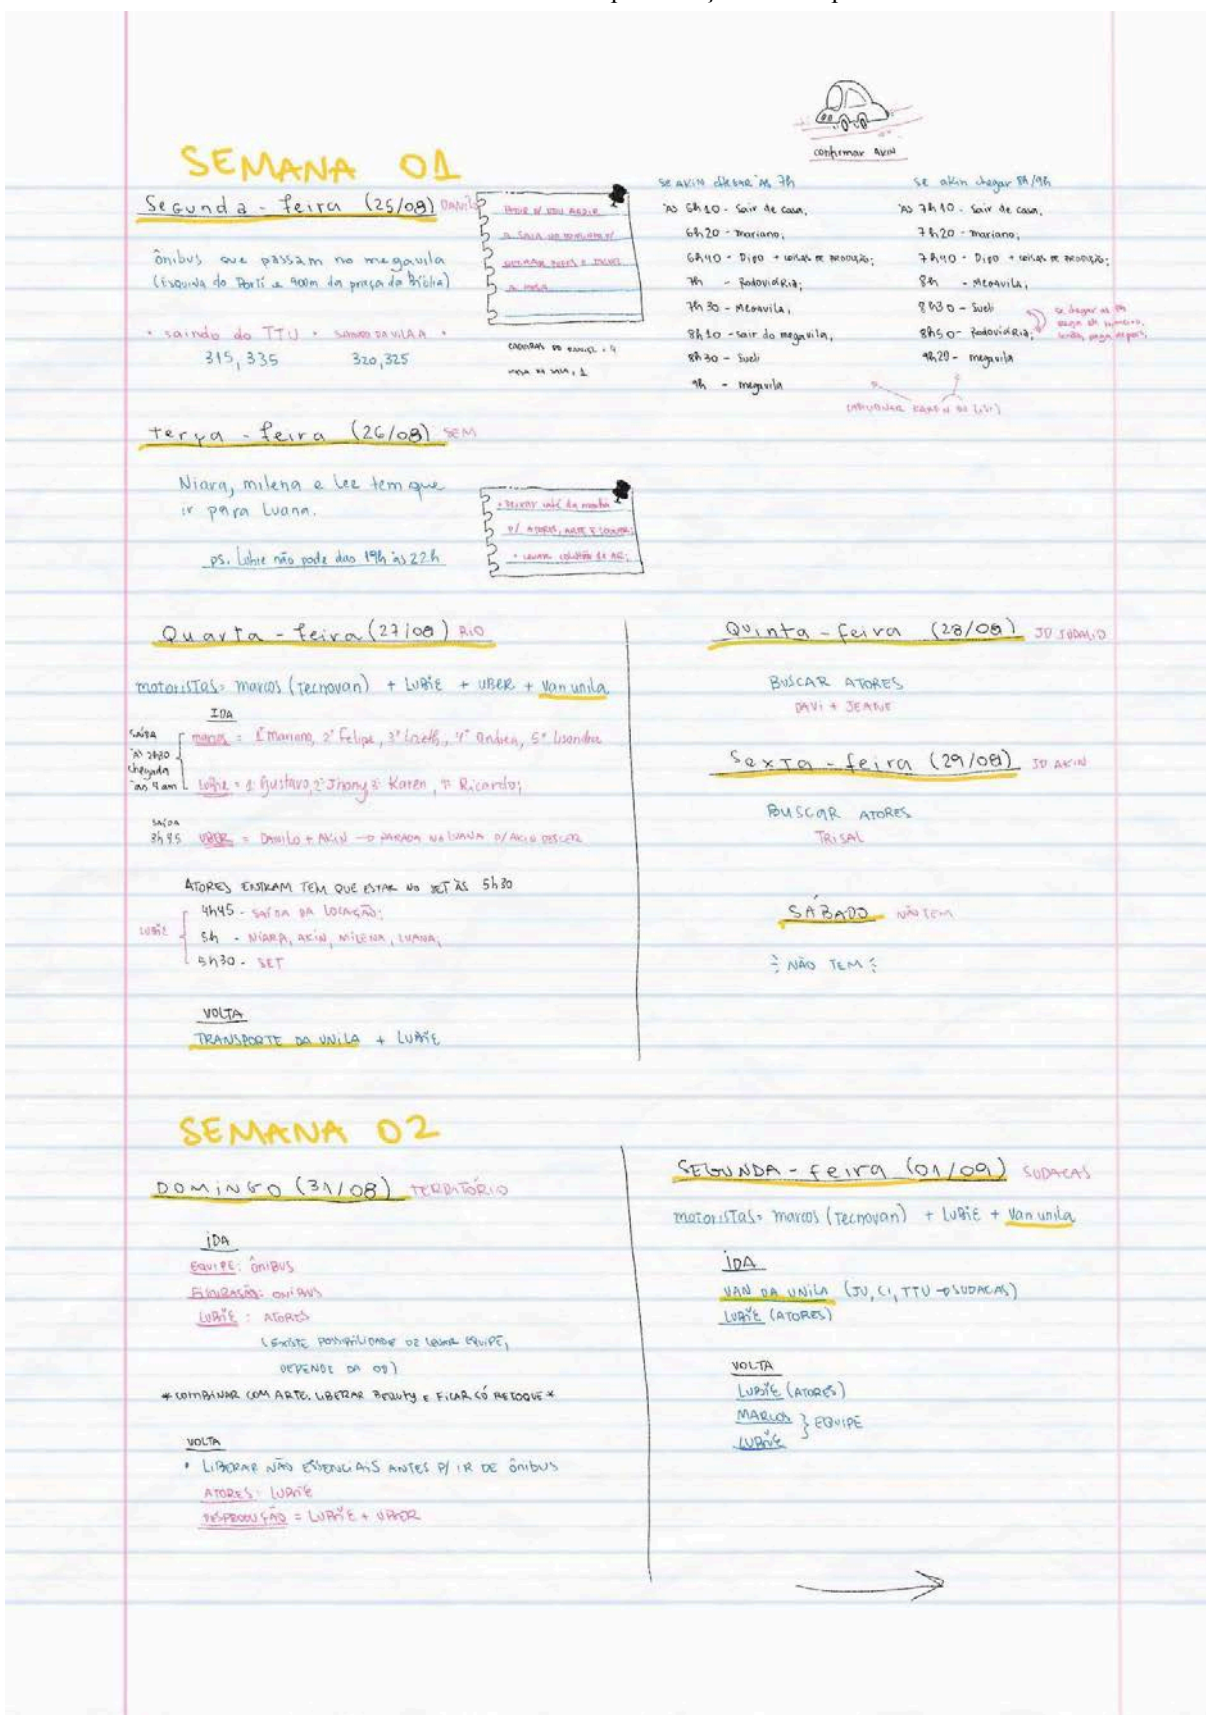 confirmar AKIN
SEMANA 01
Segunda-feira (25/08) DANILO
ônibus que passam no megavila
(Esquina do Portí e 900m da praça da Bíblia)
• saindo do TTU • SAINDO DA VILA A •
315, 335 320, 325
CADEIRAS DO DANIEL = 4
MESA DA SALA, 1
SE AKIN CHEGAR ÀS 7h
ÀS 6h10 - Sair de casa,
6h20 - mariano;
6h40 - Dipo + coisas de produção;
7h - Rodoviária;
7h30 - Megavila;
8h10 - sair do megavila,
8h30 - Sueli
9h - megavila
se akin chegar 8h/9h
ÀS 7h10 - Sair de casa,
7h20 - mariano;
7h40 - Dipo + coisas de produção;
8h - Megavila;
8h30 - Sueli
8h50 - Rodoviária;
9h20 - megavila
terça-feira (26/08) SEM
Niara, milena e Lee tem que
ir para Luana.
ps. Lubie não pode das 19h às 22h
• Deixar café da manhã
p/ ATORES, ARTE E
• Levar colchão de AR;
Quarta-feira (27/08) RIO
motoristas= marcos (Tecnovan) + LUBiE + UBER + Van unila
IDA
SAÍDA
chegada
às 4am
marcos = 1º mariano, 2º Felipe, 3º Lizeth, 4º Andrea, 5º Lisandra
Lubie = 1º Gustavo, 2º Jhony 3º Karen, Ricardo;
SAÍDA
3h45 UBER = DANILO + AKIN → PARADA NA LUANA P/ AKIN DESCER
ATORES ENTRAM TEM QUE ESTAR NO SET ÀS 5h30
LUBIE
4h45 - SAÍDA DA LOCAÇÃO;
5h - NIARA, AKIN, MILENA, LUANA;
5h30 - SET
VOLTA
TRANSPORTE DA UNILA + LUBIE
Quinta-feira (28/08)
BUSCAR ATORES
DAVI + JEANE
Sexta-feira (29/08) JD AKIN
BUSCAR ATORES
TRISAL
SÁBADO NÃO TEM
NÃO TEM
SEMANA 02
DOMINGO (31/08) TERRITÓRIO
IDA
EQUIPE: ÔNIBUS
FIGURAÇÃO: ONIBUS
LUBIE: ATORES
(EXISTE POSSIBILIDADE DE LEVAR EQUIPE,
DEPENDE DA OD)
*COMBINAR COM ARTE. LIBERAR BEAUTY E FICAR SÓ RETOQUE*
VOLTA
• LIBERAR NÃO ESSENCIAIS ANTES P/ IR DE ÔNIBUS
ATORES: LUBIE
DESPRODUÇÃO = LUBIE + UBER
SEGUNDA-feira (01/09) SUDACAS
motoristas= marcos (Tecnovan) + LUBiE + Van unila
IDA
VAN DA UNILA (JU, CI, TTU → SUDACAS)
LUBIE (ATORES)
VOLTA
LUBIE (ATORES)
MARCOS } EQUIPE
LUBIE